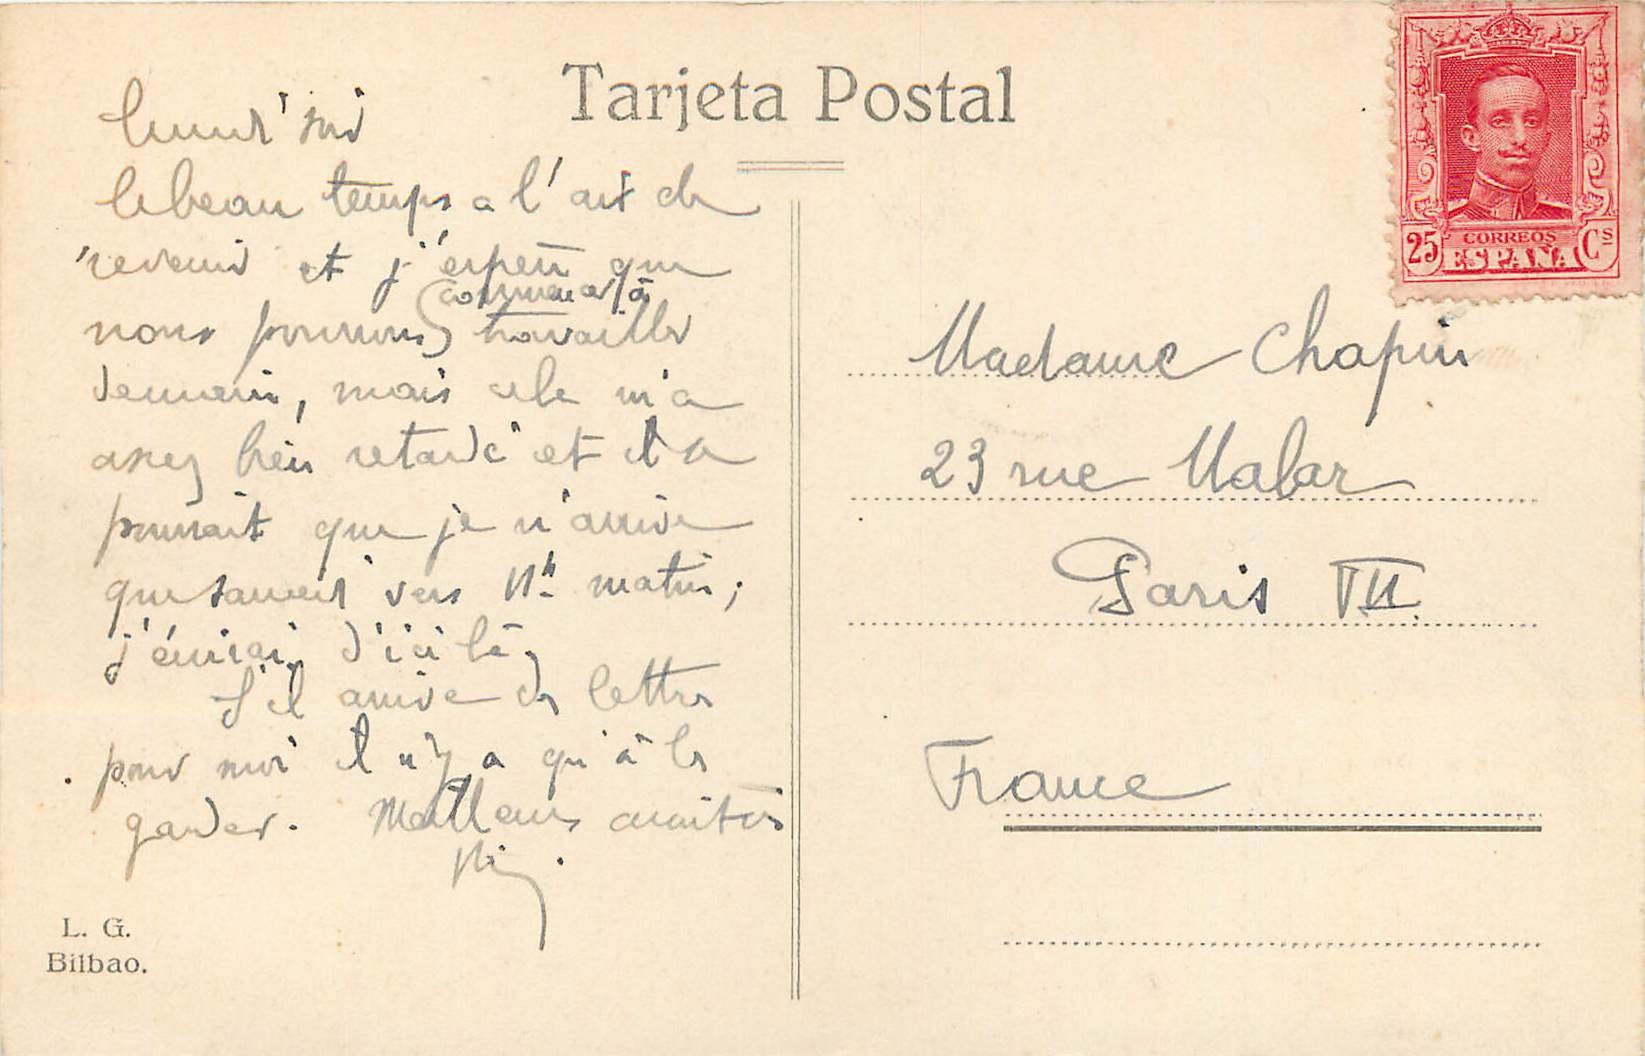 Tarjeta Postal
lundi soir
le beau temps a l'air de
revenir et j'espère que
commencer à
nous pourrons travailler
demain, mais cela m'a
assez bien retardé et il se
pourrait que je n'arrive
que samedi vers 11h matin;
j'écrirai d'ici là.
S'il arrive des lettres
pour moi il n'y a qu'à les
garder. Meilleurs amitiés
L. G.
Bilbao.
25 CORREOS Cs
ESPAÑA
Madame Chapin
23 rue Malar
Paris VII
France